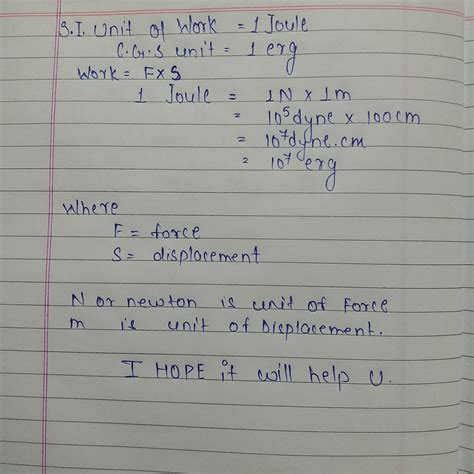 S.I. Unit of Work = 1 Joule
C.G.S unit = 1 erg
Work = F×S
1 Joule = 1N × 1m
= 10⁵ dyne × 100cm
= 10⁷ dyne.cm
= 10⁷ erg
Where
F = force
S = displacement
N or newton is unit of Force
m is unit of Displacement.
I HOPE it will help U.